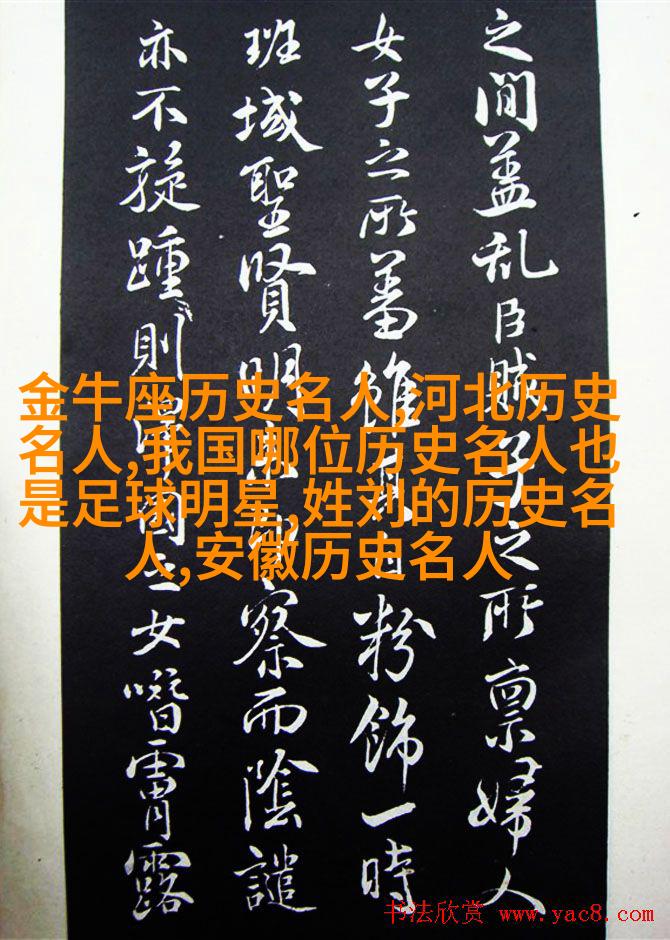 之间盖乱臣賊子之所禀婦人
女子之所雖自粉飾一時
班域聖賢明察而陰譴
亦不旋踵則國之女霄露
金牛座历史名人,河北历史
名人,我国哪位历史名人也
是足球明星,姓刘的历史名
人,安徽历史名人
书法欣赏 www.yac8.com